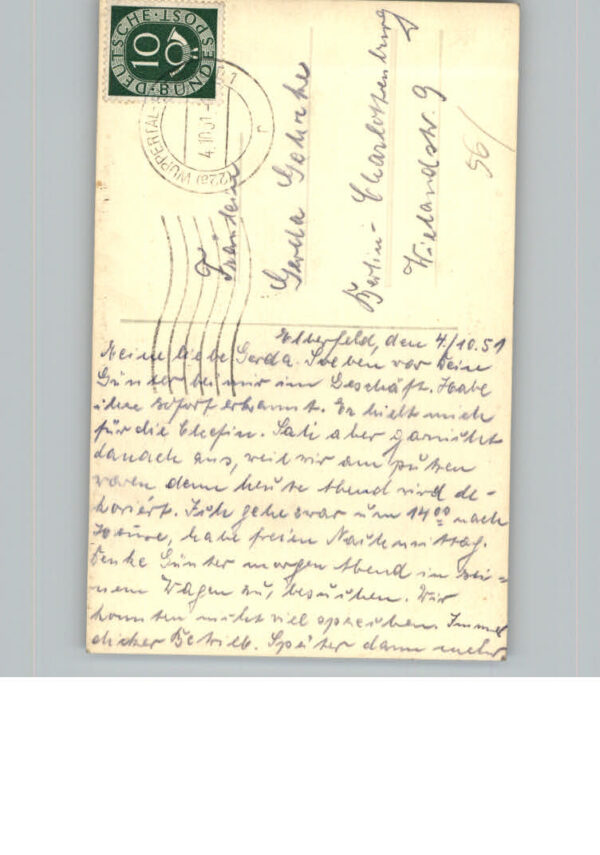 DEUTSCHE · BUNDESPOST
10
(22a) WUPPERTAL-
4.10.51
1
r
Fräulein
Gerda
Berlin-Charlottenburg
Wielandstr. 9
56/
Elberfeld, den 4./10.51
Meine liebe Gerda. Soeben war Dein
Günter bei mir im Geschäft. Habe
ihn sofort erkannt. Er hielt mich
für die Chefin. Sah aber garnicht
danach aus, weil wir am putzen
waren denn heute Abend wird de-
koriert. Ich gehe zwar um 14⁰⁰ nach
Hause, habe freien Nachmittag.
Denke Günter morgen Abend in sei-
nem Wagen zu, besuchen. Wir
konnten nicht viel sprechen Immer
dicker Betrieb. Später dann mehr